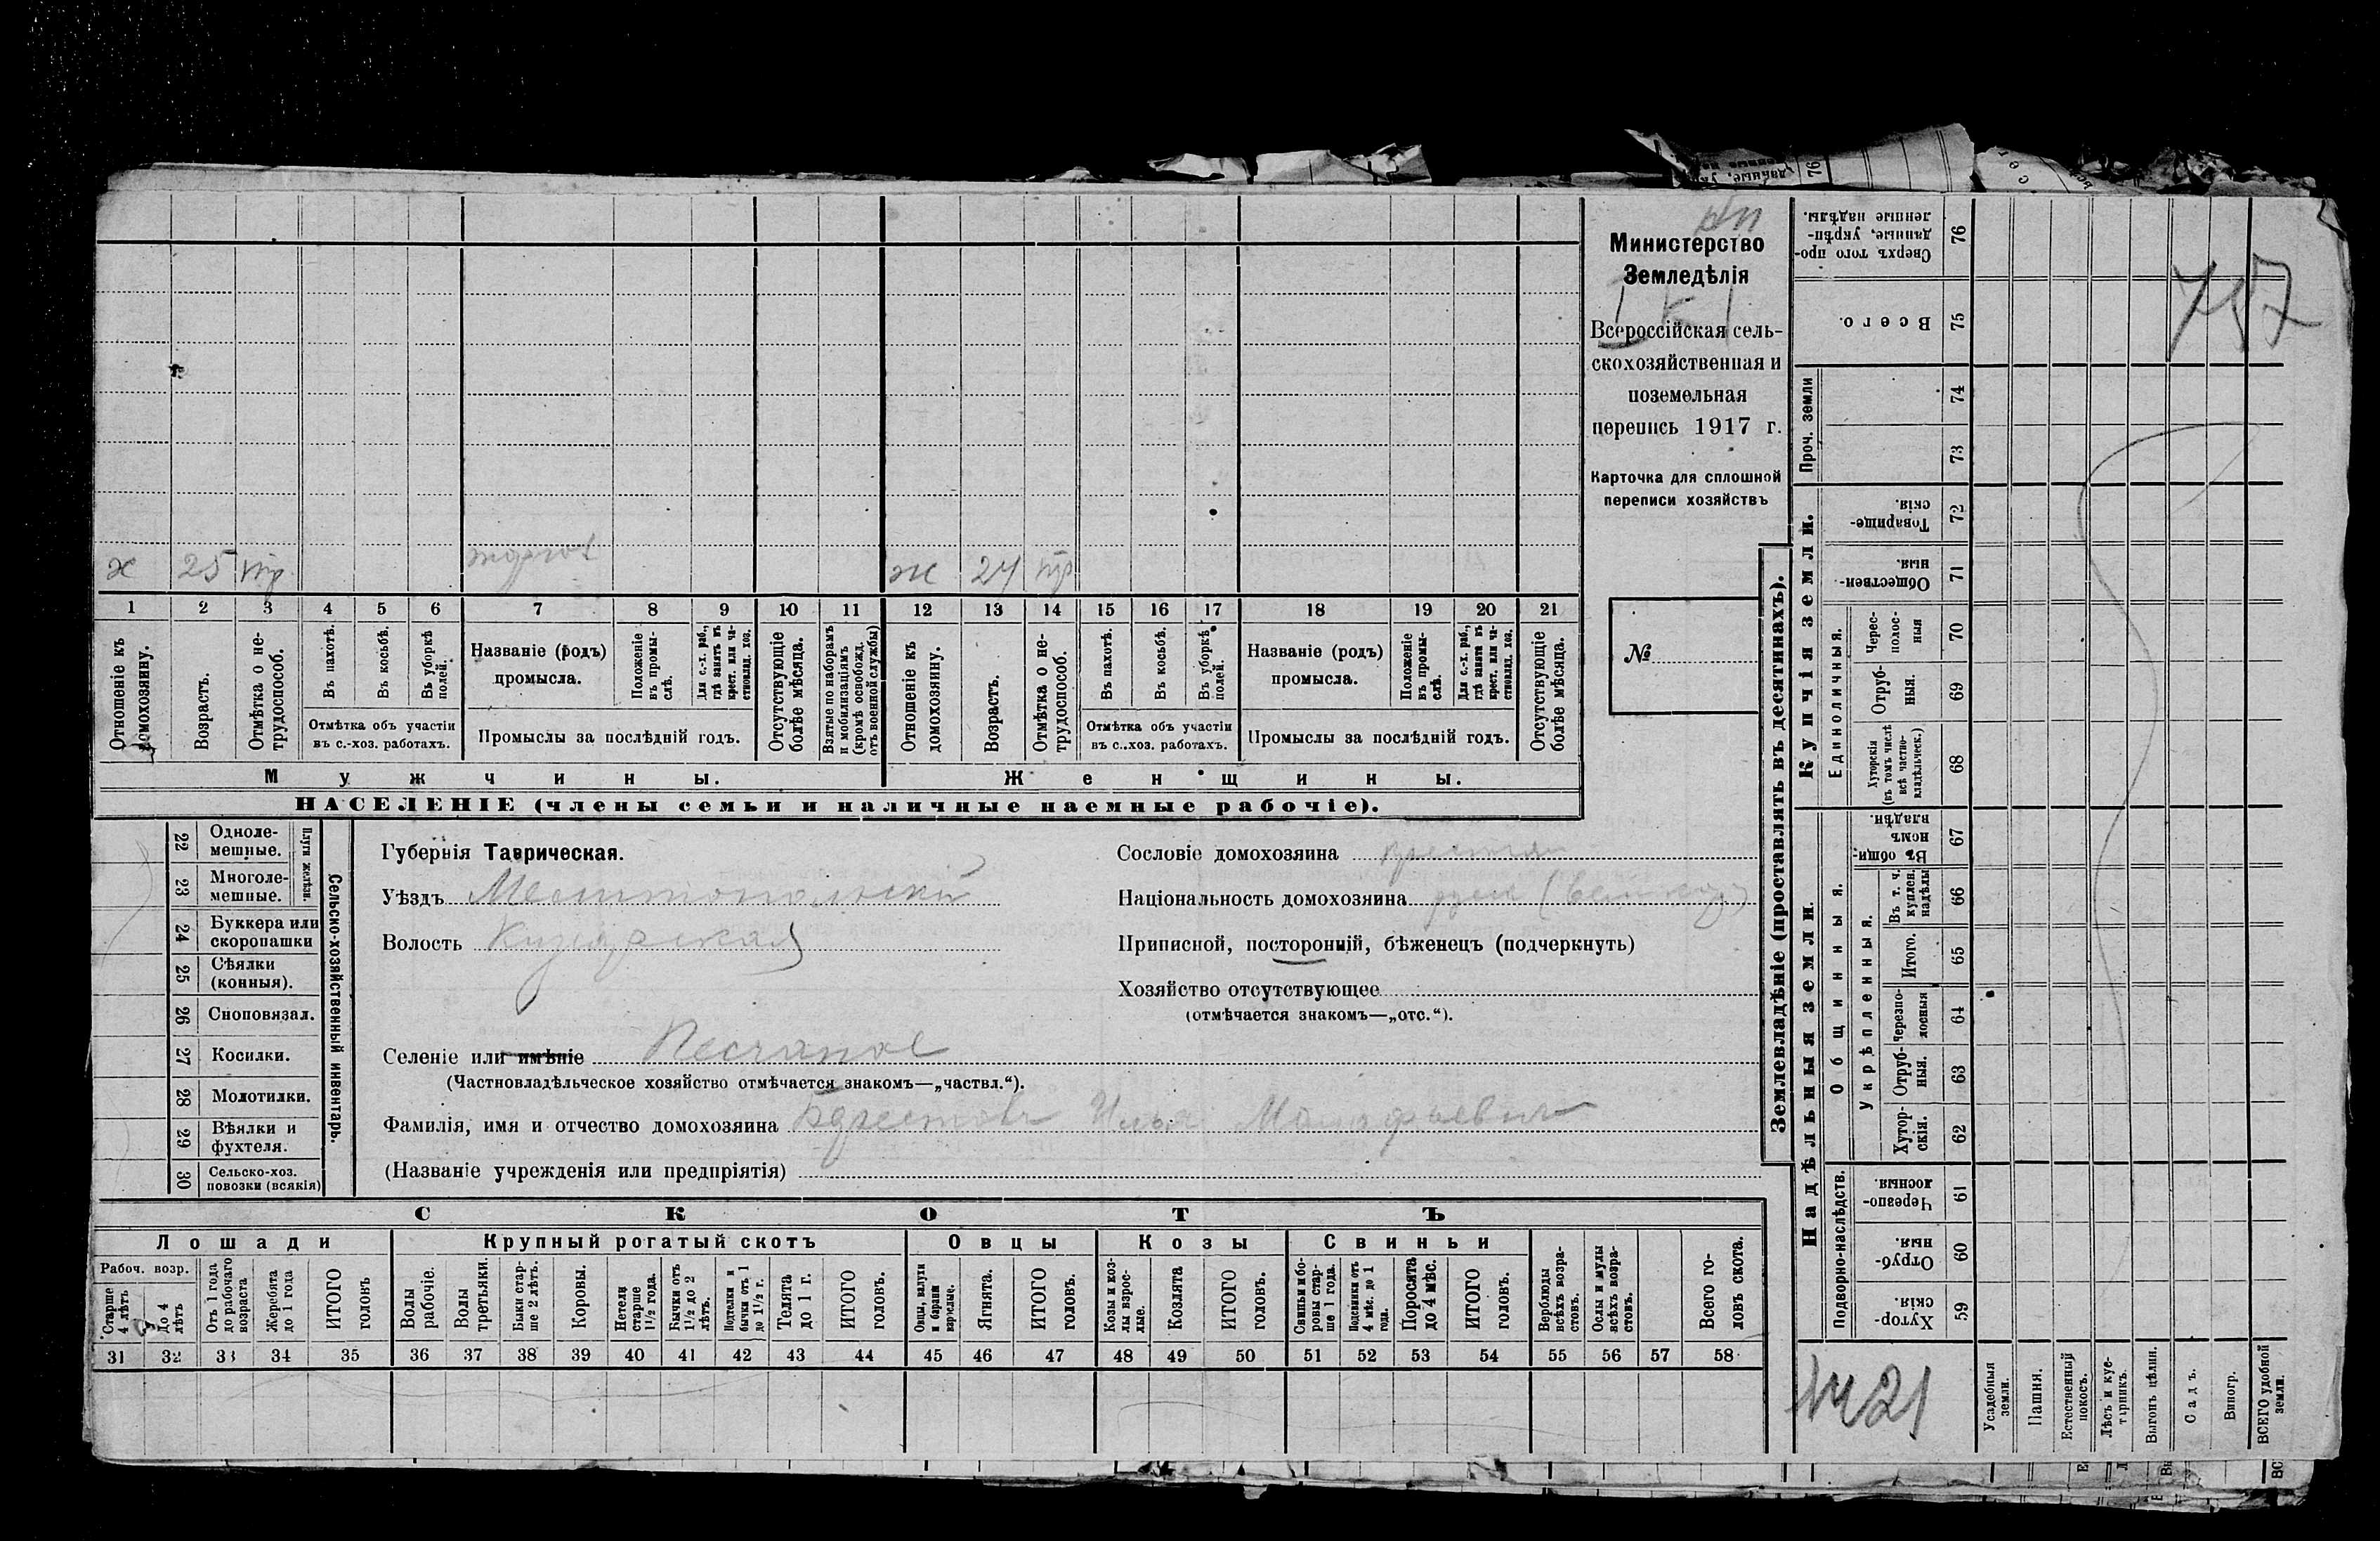 Министерство
Земледѣлія
Всероссійская сель-
скохозяйственная и
поземельная
перепись 1917 г.
Карточка для сплошной
переписи хозяйствъ
№
х 25 тр ж 24 тр
1 2 3 4 5 6 7 8 9 10 11 12 13 14 15 16 17 18 19 20 21
Отношеніе къ домохозяину.
Возрастъ.
Отмѣтка о не-трудоспособ.
Въ пахотѣ.
Въ косьбѣ.
Въ уборкѣ полей.
Отмѣтка объ участіи
въ с.-хоз. работахъ.
Названіе (родъ)
промысла.
Положеніе въ промы-слѣ.
Для с.-х. раб., гдѣ занятъ въ крест. или ча-стновлад. хоз.
Промыслы за послѣдній годъ.
Отсутствующіе болѣе мѣсяца.
Взятые по наборамъ и мобилизаціямъ (кромѣ освобожд. отъ военной службы)
Отношеніе къ домохозяину.
Возрастъ.
Отмѣтка о не-трудоспособ.
Въ пахотѣ.
Въ косьбѣ.
Въ уборкѣ полей.
Отмѣтка объ участіи
въ с.-хоз. работахъ.
Названіе (родъ)
промысла.
Положеніе въ промы-слѣ.
Для с.-х. раб., гдѣ занята въ крест. или ча-стновлад. хоз.
Промыслы за послѣдній годъ.
Отсутствующіе болѣе мѣсяца.
Мужчины.
Женщины.
НАСЕЛЕНІЕ (члены семьи и наличные наемные рабочіе).
Сельско-хозяйственный инвентарь.
Плуги желѣзн.
22 Одноле-мешные.
23 Многоле-мешные.
24 Буккера или скоропашки
25 Сѣялки (конныя).
26 Сноповязал.
27 Косилки.
28 Молотилки.
29 Вѣялки и фухтеля.
30 Сельско-хоз. повозки (всякія)
Губернія Таврическая.
Уѣздъ Мелитопольскій
Волость
Селеніе или имѣніе Песчаное
(Частновладѣльческое хозяйство отмѣчается знакомъ—„частвл.“).
Фамилія, имя и отчество домохозяина Илья
(Названіе учрежденія или предпріятія)
Сословіе домохозяина
Національность домохозяина
Приписной, посторонній, бѣженецъ (подчеркнуть)
Хозяйство отсутствующее
(отмѣчается знакомъ—„отс.“).
СКОТЪ
Лошади
Рабоч. возр.
Старше 4 лѣтъ
До 4 лѣтъ
Отъ 1 года до рабочаго возраста
Жеребята до 1 года
ИТОГО головъ
Крупный рогатый скотъ
Волы рабочіе.
Волы третьяки.
Быки стар-ше 2 лѣтъ.
Коровы.
Нетели старше 1½ года.
Бычки отъ 1½ до 2 лѣтъ.
Подтелки и бычки отъ 1 до 1½ г.
Телята до 1 г.
ИТОГО головъ.
Овцы
Овцы, валухи и бараны взрослые.
Ягнята.
ИТОГО головъ.
Козы
Козы и коз-лы взрос-лые.
Козлята
ИТОГО головъ.
Свиньи
Свиньи и бо-ровы стар-ше 1 года.
Подсвинки отъ 4 мѣс. до 1 года.
Поросята до 4 мѣс.
ИТОГО головъ.
Верблюды всѣхъ возра-стовъ.
Ослы и мулы всѣхъ возра-стовъ.
Всего го-ловъ скота.
31 32 33 34 35 36 37 38 39 40 41 42 43 44 45 46 47 48 49 50 51 52 53 54 55 56 57 58
Землевладѣніе (проставлять въ десятинахъ).
Купчія земли.
Сверхъ того про-данные, укрѣп-ленные надѣлы. 76
Всего. 75
Проч. земли
74
73
Товарище-скія 72
Обществен-ныя. 71
Единоличныя.
Черес-полос-ныя 70
Отруб-ныя. 69
Хуторскія (въ томъ числѣ всѣ частно-владѣльческ.) 68
Надѣльныя земли.
Общинныя.
Въ общин-номъ владѣн. 67
Укрѣпленныя.
Въ т. ч. куплен. надѣлы 66
Итого. 65
Черезпо-лосныя 64
Отруб-ныя. 63
Хутор-скія. 62
Подворно-наслѣдств.
Черезпо-лосныя. 61
Отруб-ныя. 60
Хутор-скія. 59
Усадебныя земли.
Пашня.
Естественный покосъ.
Лѣсъ и кус-тарникъ.
Выгонъ цѣлин.
Садъ.
Виногр.
ВСЕГО удобной земли.
757
1421